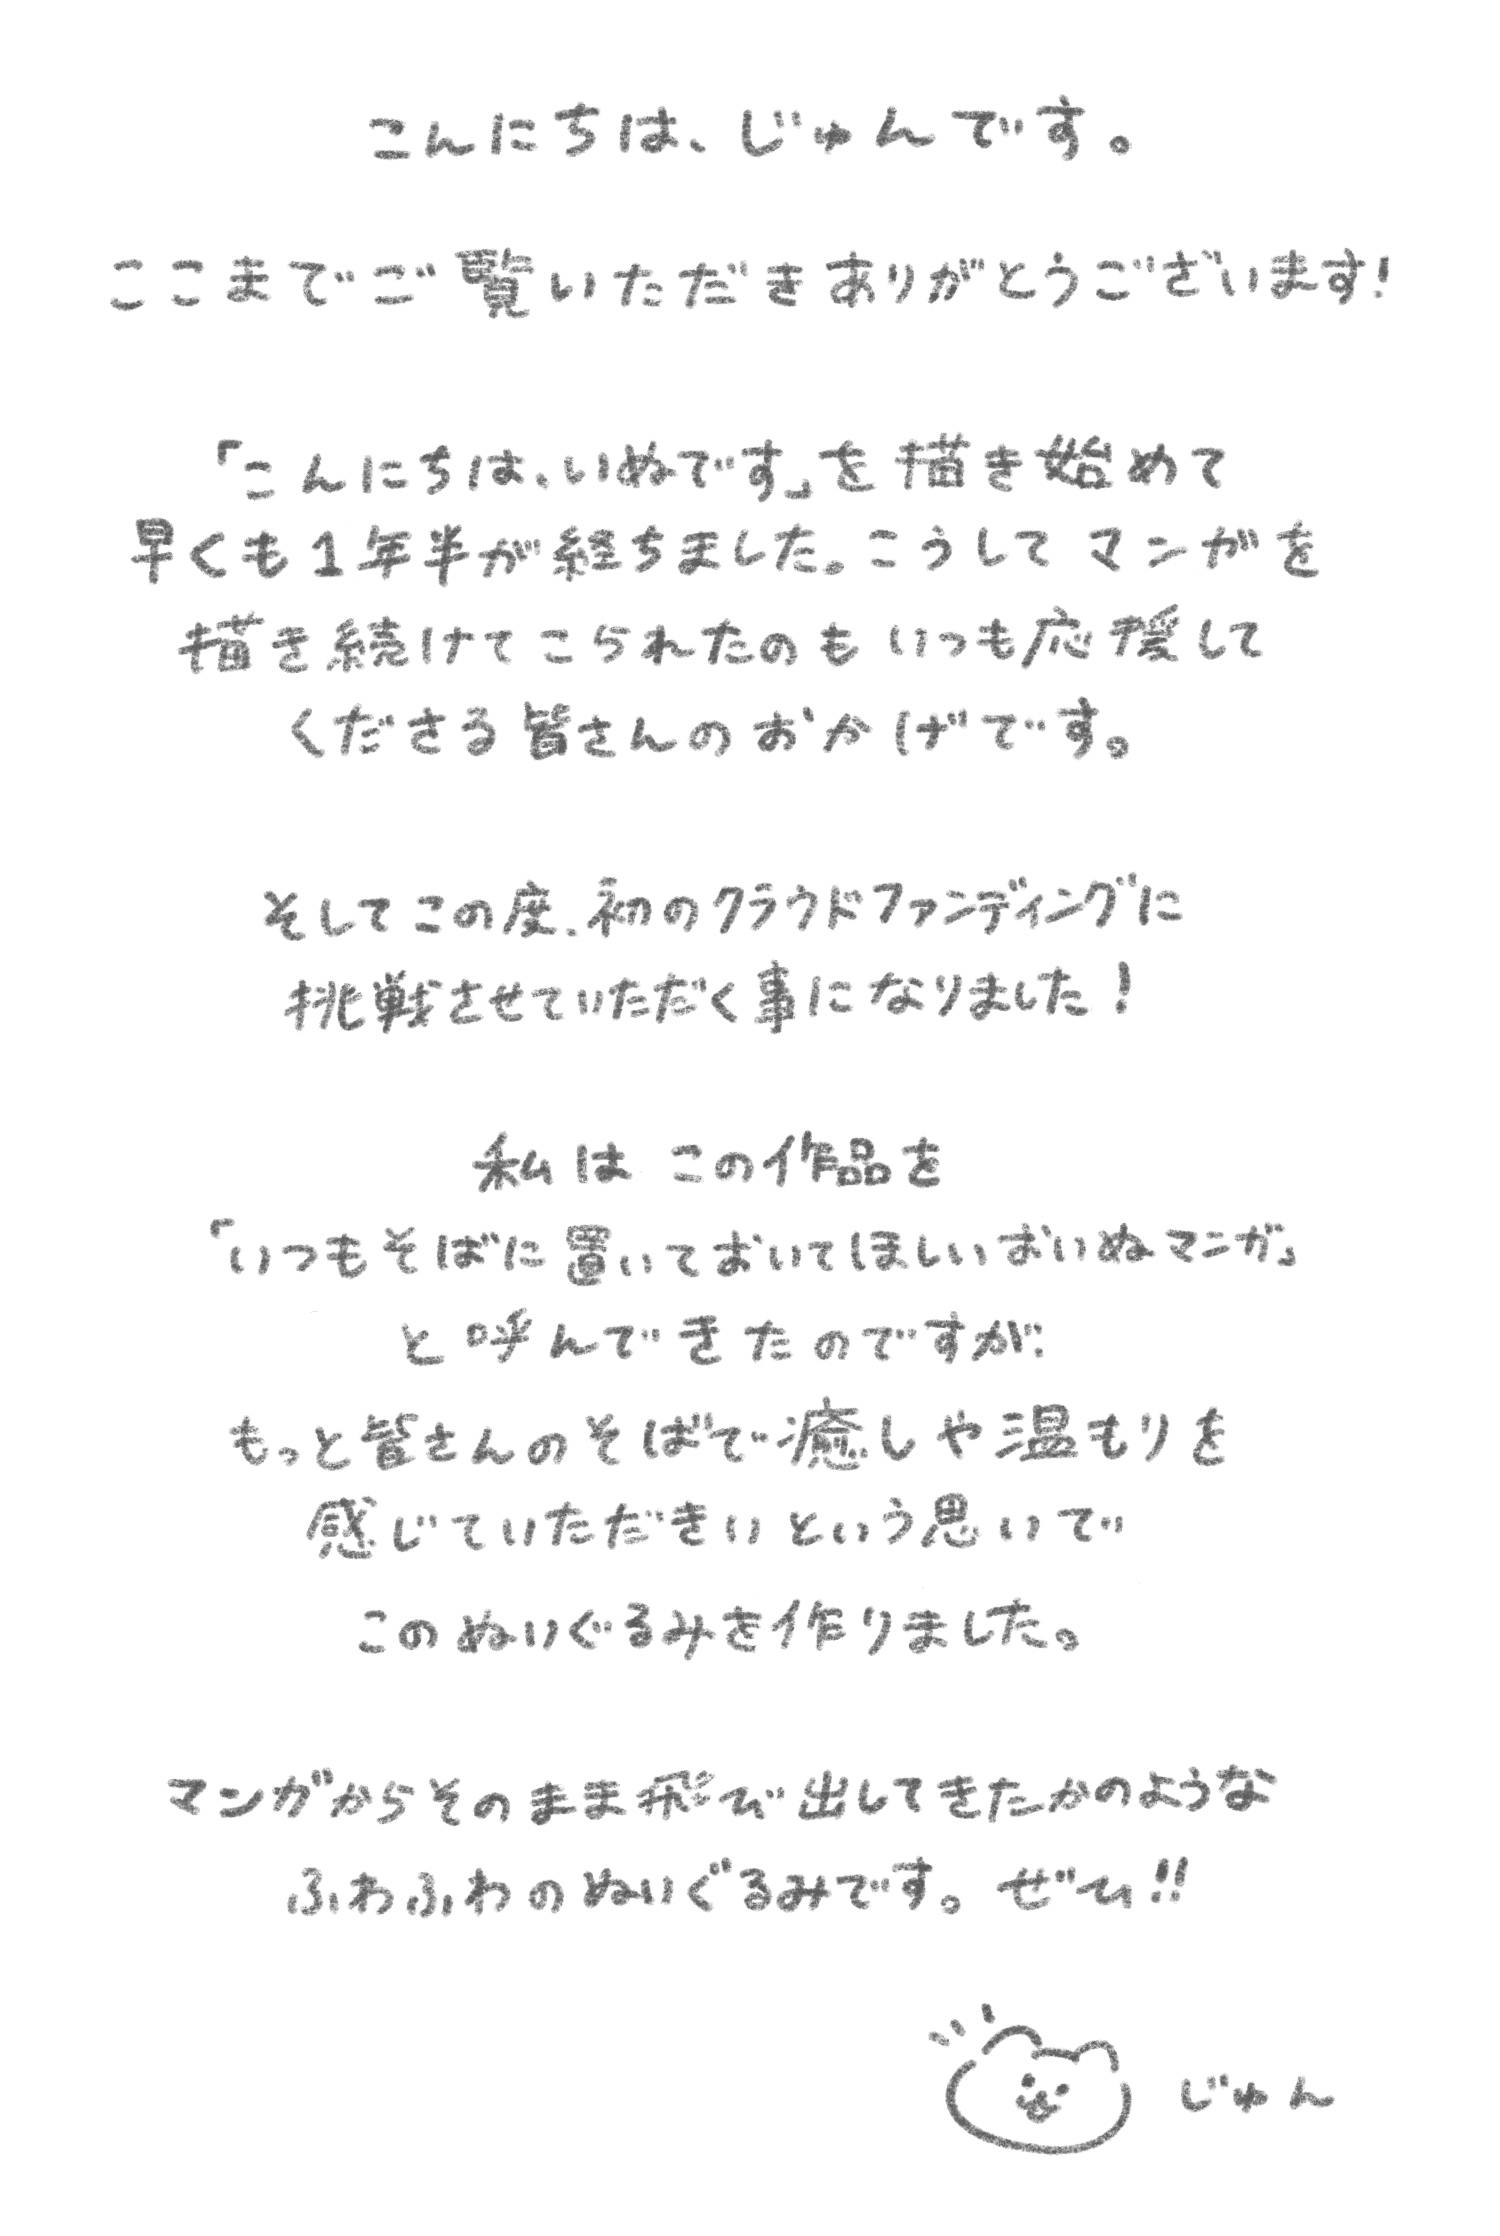 こんにちは、じゅんです。
ここまでご覧いただきありがとうございます!
「こんにちは、いぬです」を描き始めて
早くも1年半が経ちました。こうしてマンガを
描き続けてこられたのもいつも応援して
くださる皆さんのおかげです。
そしてこの度、初のクラウドファンディングに
挑戦させていただく事になりました!
私はこの作品を
「いつもそばに置いておいてほしいおいぬマンガ」
と呼んできたのですが、
もっと皆さんのそばで癒しや温もりを
感じていただきいという思いで
このぬいぐるみを作りました。
マンガからそのまま飛び出してきたかのような
ふわふわのぬいぐるみです。ぜひ!!
じゅん